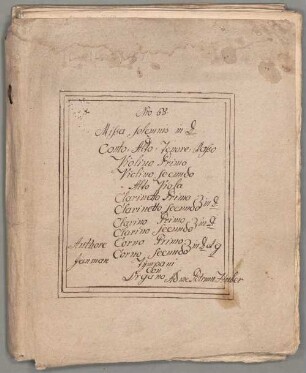 Nro 58.
Missa solemnis in D
Canto. Alto. Tenore. Basso
Violino Primo
Violino Secundo
Alto Viola
Clarinetto Primo } in D
Clarinetto Secundo
Clarino Primo } in D
Clarino Secundo
Authore Corno Primo } in D et g
Corno Secundo
Tympani
Con
Organo